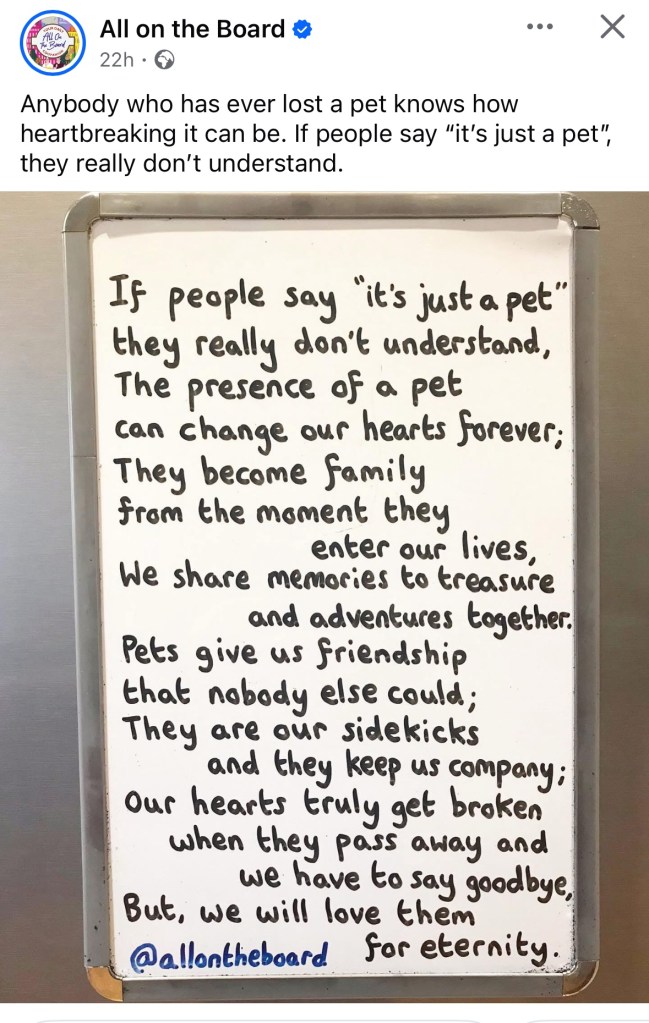 All on the Board
22h ·
Anybody who has ever lost a pet knows how
heartbreaking it can be. If people say “it’s just a pet”,
they really don’t understand.
If people say "it's just a pet"
they really don't understand,
The presence of a pet
can change our hearts forever;
They become family
from the moment they
enter our lives,
We share memories to treasure
and adventures together.
Pets give us friendship
that nobody else could;
They are our sidekicks
and they keep us company;
Our hearts truly get broken
when they pass away and
we have to say goodbye,
But, we will love them
for eternity.
@allontheboard